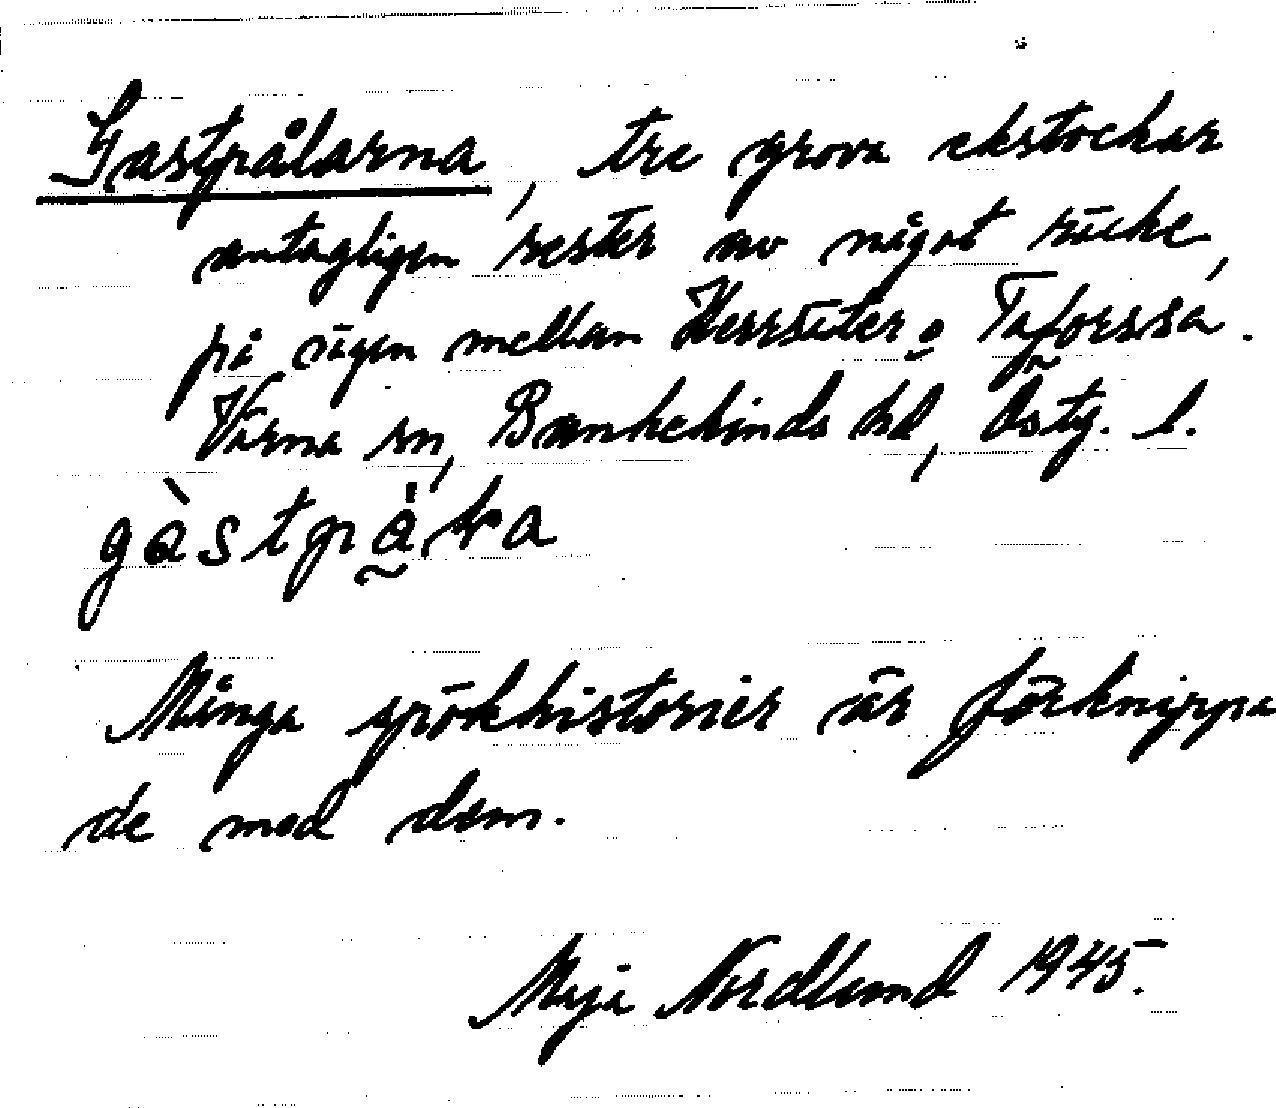 Gastpålarna, tre grova ekstockar
antagligen rester av något räcke,
på vägen mellan Herrsäter o Taforsså.
Värna sn, Bankekinds hd, Östg. l.
gàstpå̀ɽa
Många spökhistorier är förknippa
de med dem.
Maja Nordlund 1945.